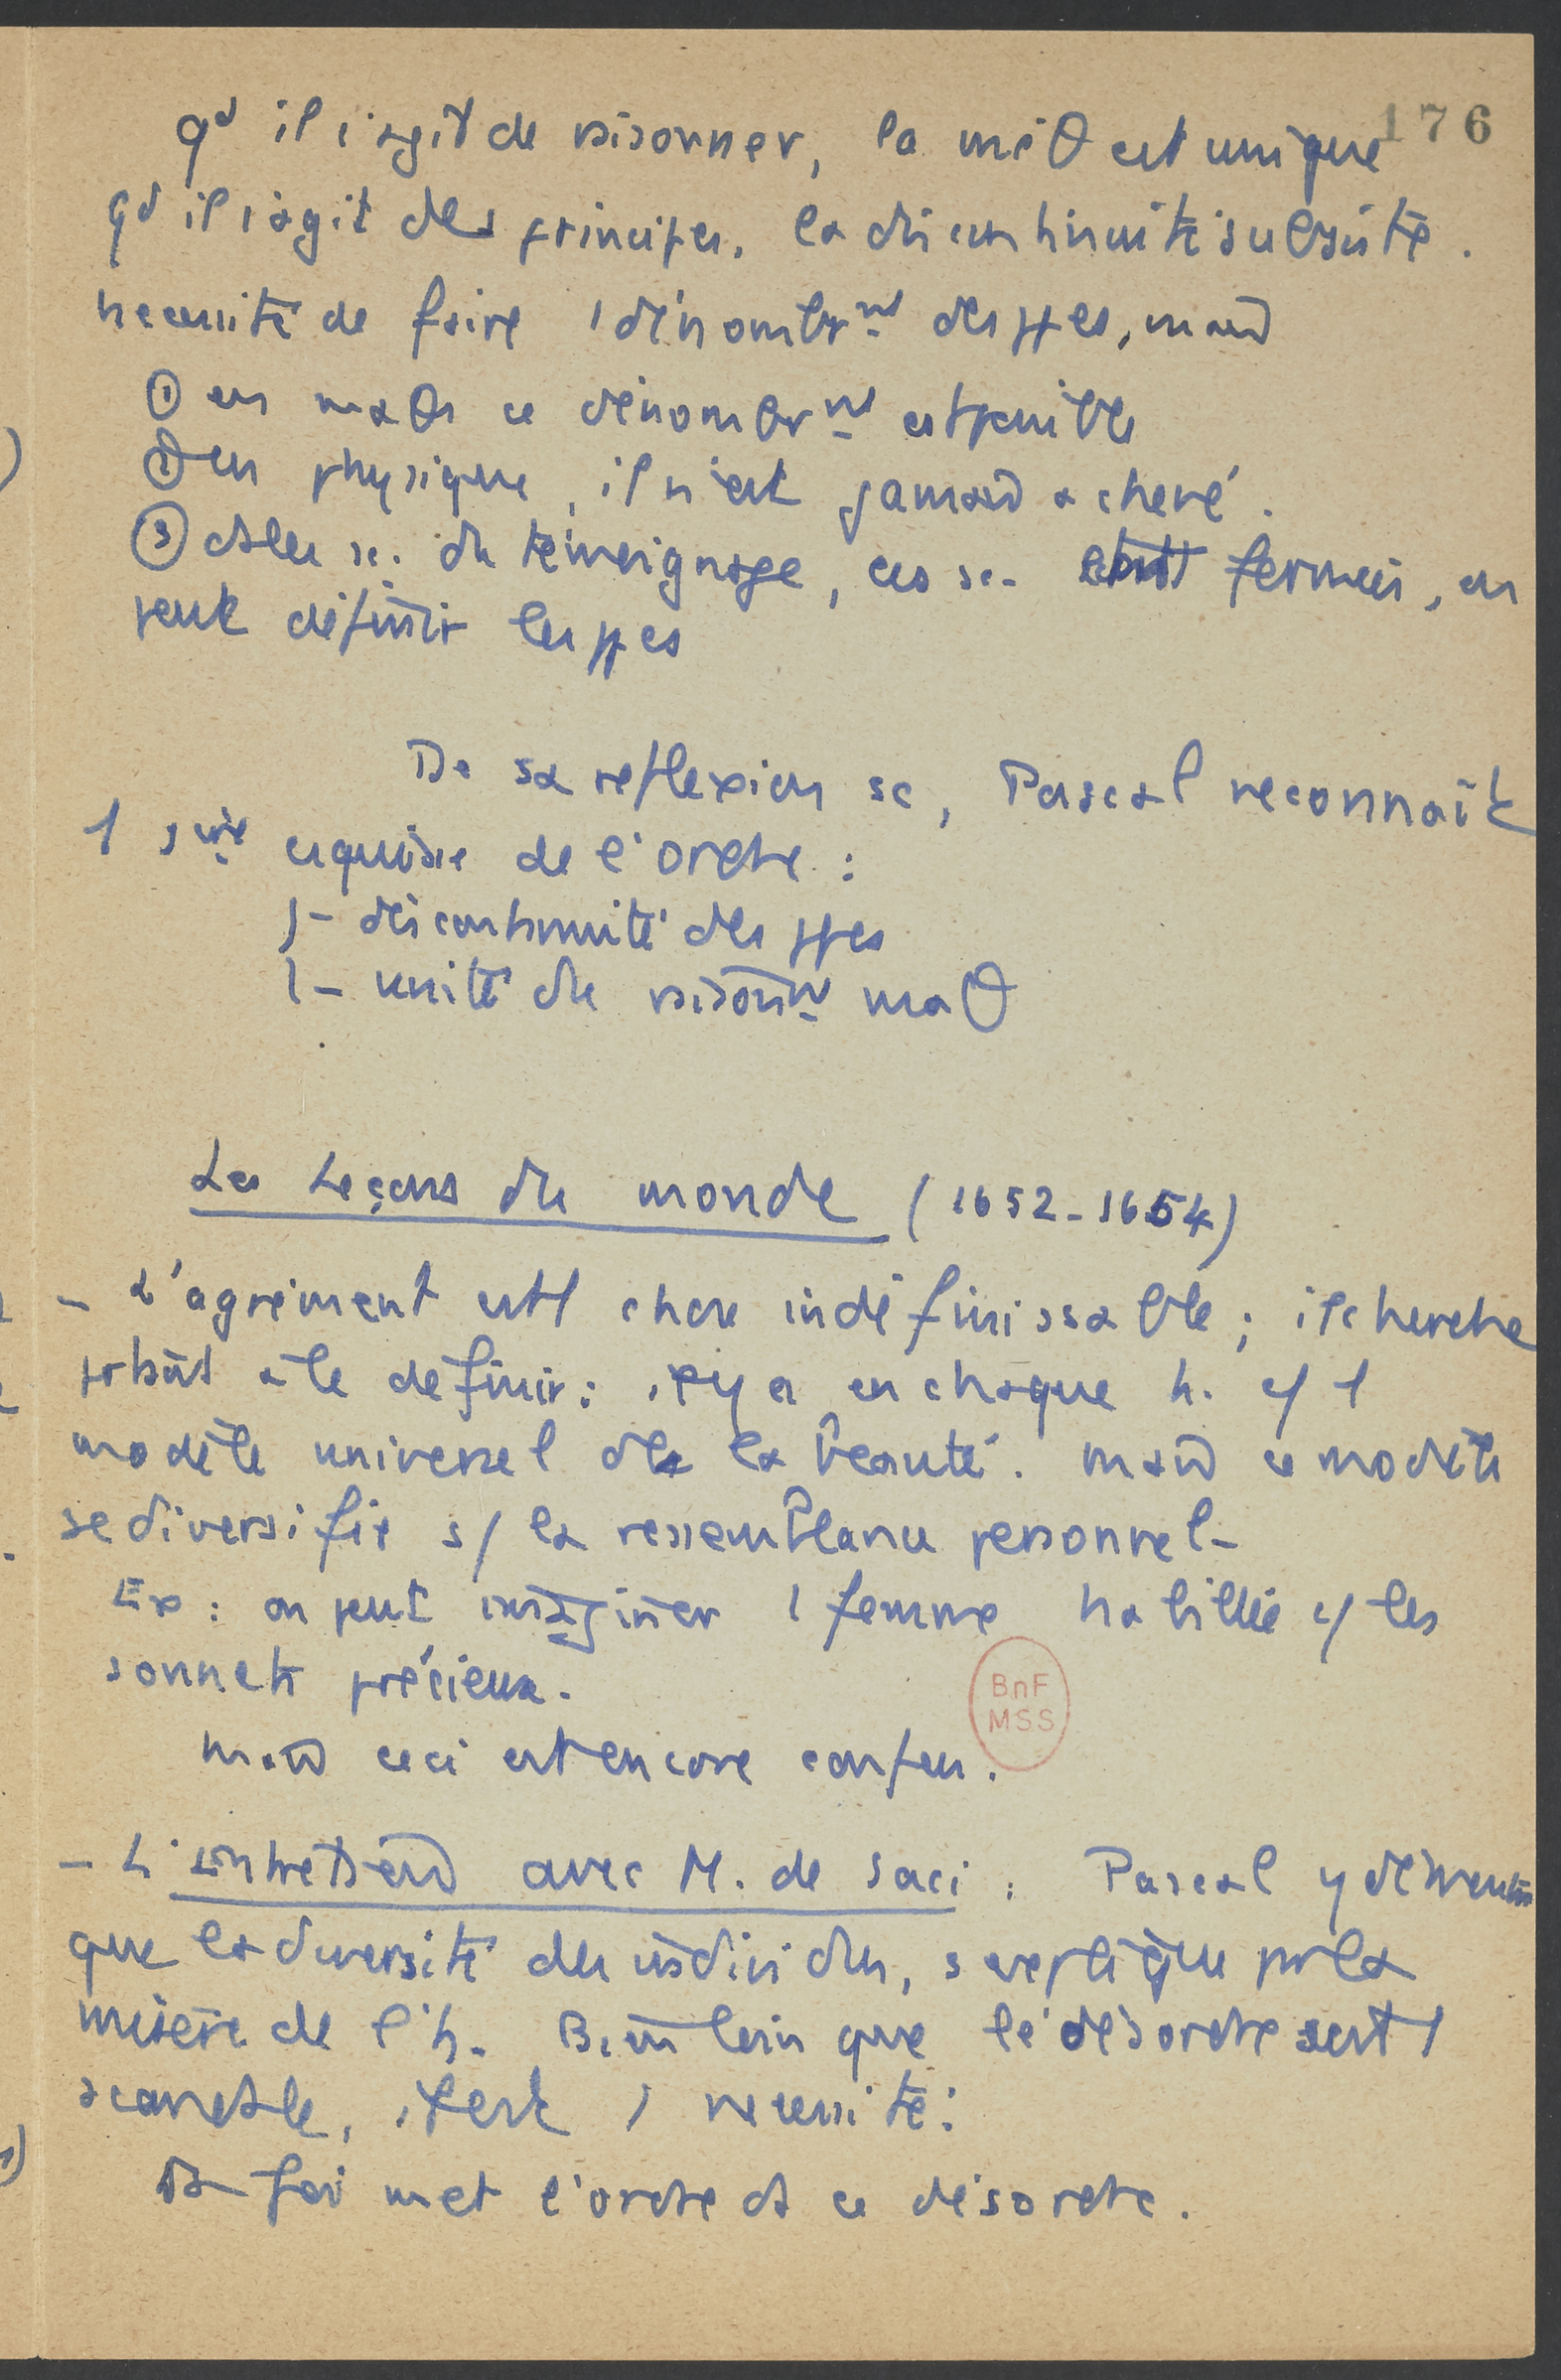 176
qd il s'agit de raisonner, la méθ est unique
qd il s'agit des principes, la discontinuité subsiste.
nécessité de faire 1 dénombrnt des ppes, mais
① en maths ce dénombrnt est possible
② en physique, il n'est jamais achevé.
③ ds les sc. du témoignage, ces sc. fermées, on
peut définir les ppes
De sa réflexion sc, Pascal reconnaît
1 1ère esquisse de l'ordre :
- discontinuité des ppes
- unité du raisonnt maθ
Les Leçons du monde (1652-1654)
- L'agrément est 1 chose indéfinissable ; il cherche
prtant à le définir : il y a en chaque h. c/ 1
modèle universel de la beauté. mais ce modèle
se diversifie s/ la ressemblance personnel-
Ex : on peut imaginer 1 femme habillée c/ les
sonnets précieux.
BnF
MSS
mais ceci est encore confus.
- L'Entretien avec M. de Saci : Pascal y démontre
que la diversité des individus, s'explique pr la
misère de l'h. Bien loin que le désordre soit 1
scandale, il est 1 nécessité :
La foi met l'ordre ds ce désordre.